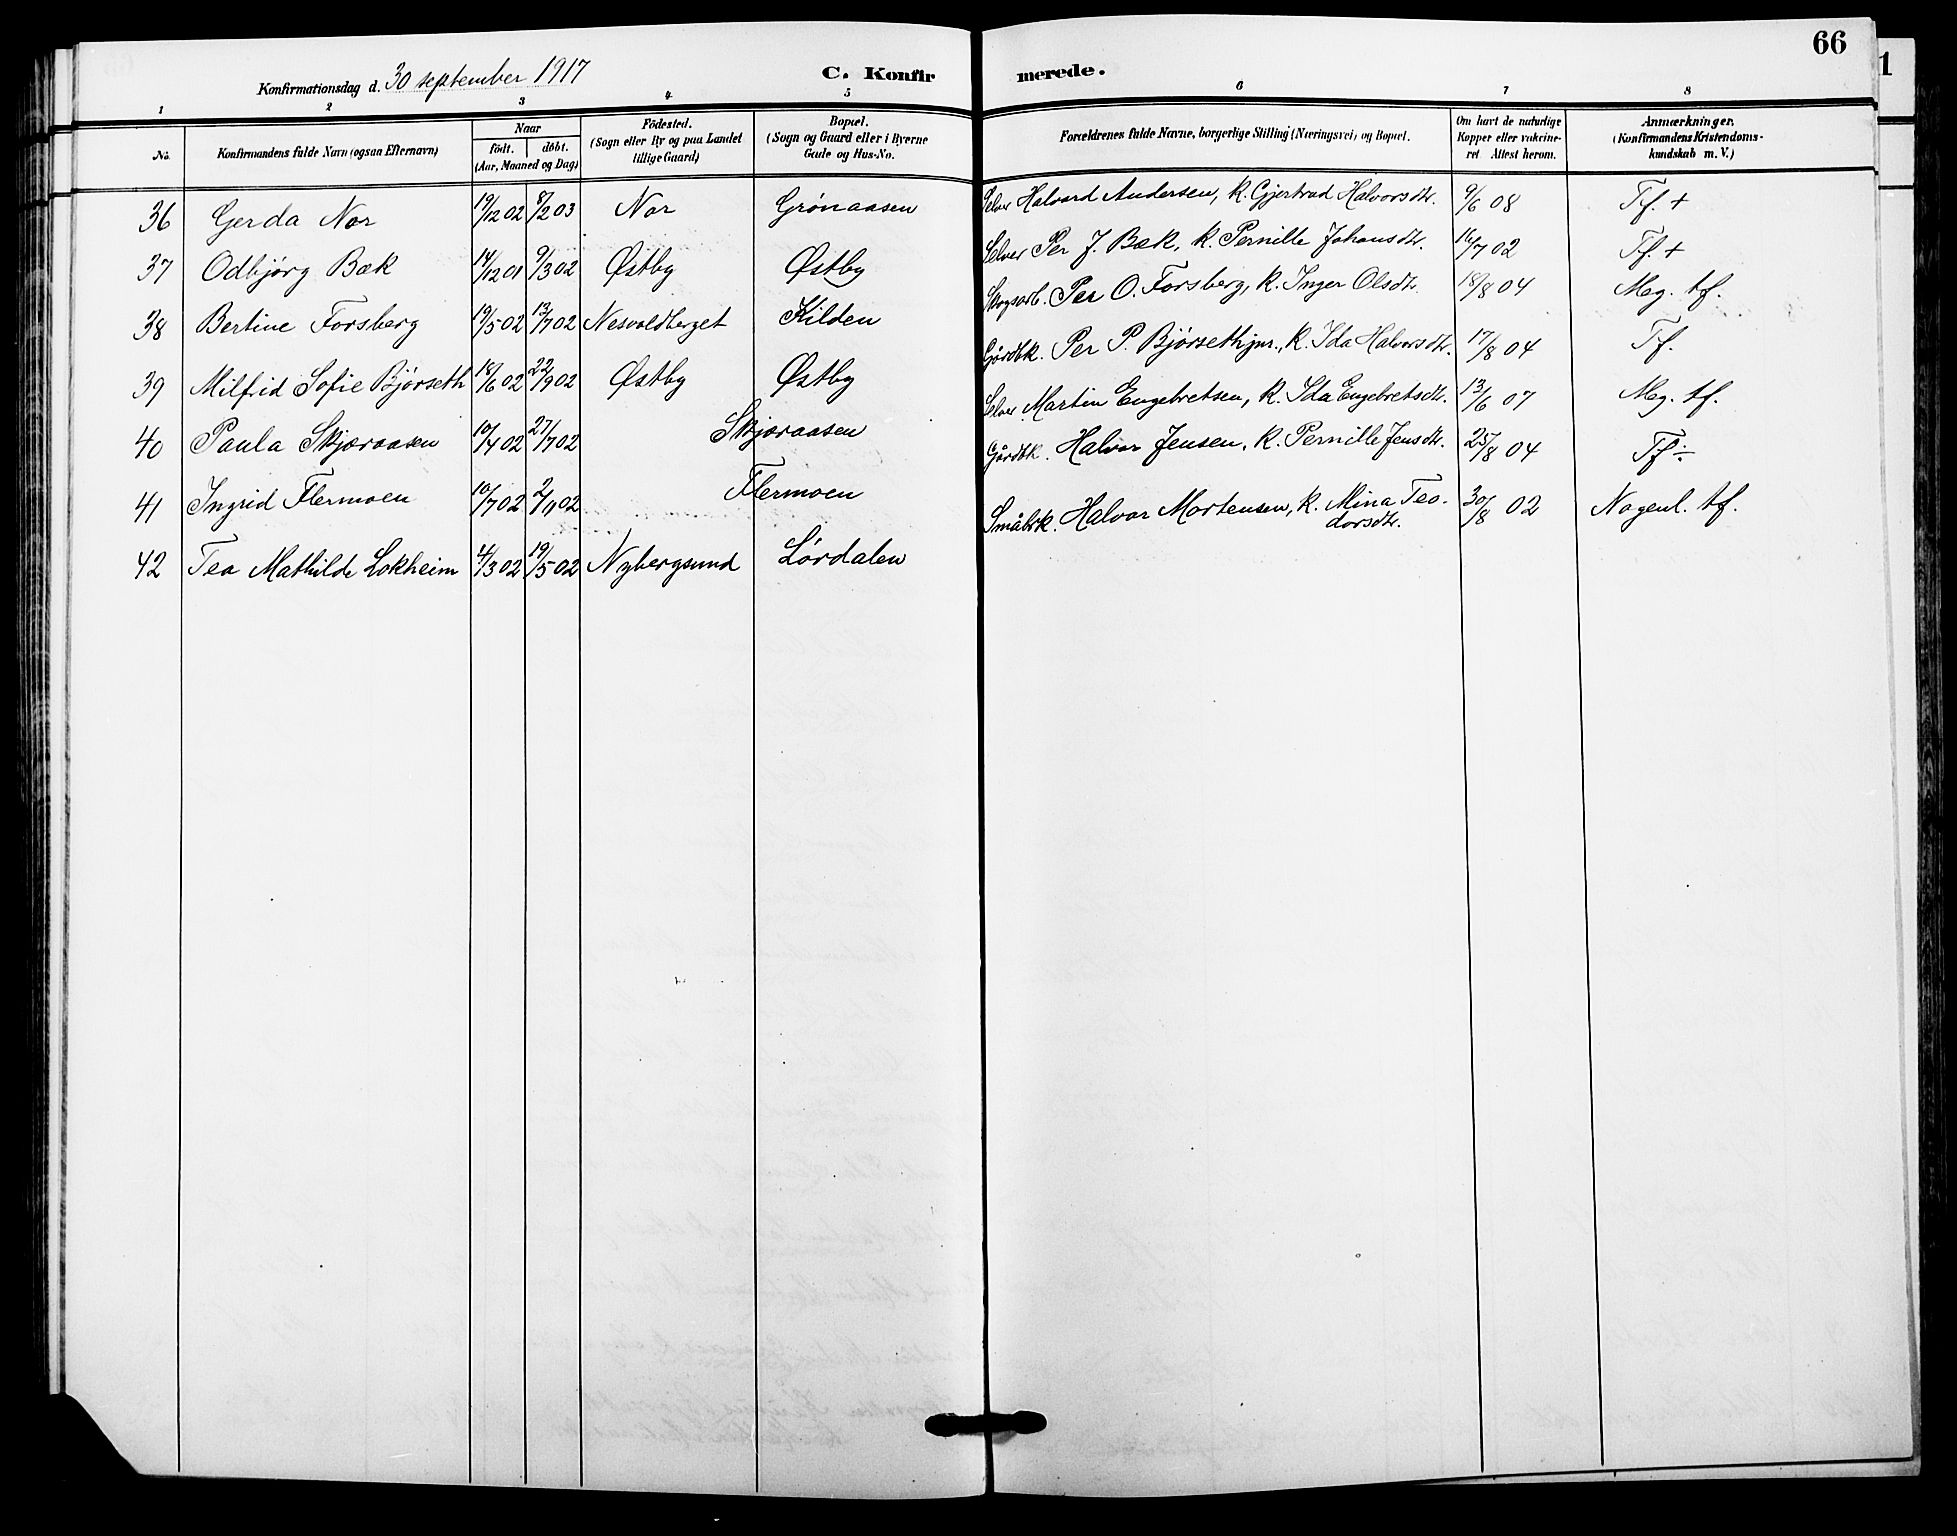 66
1
Konfirmationsdag d. 30 september 1917
C. Konfir merede.
1 2 3 4 5 6 7 8
No. Konfirmandens fulde Navn (ogsaa Efternavn) Naar födt. döbt. (Aar, Maaned og Dag) Födested. (Sogn eller By og paa Landet tillige Gaard) Bopæl. (Sogn og Gaard eller i Byerne Gade og Hus-No. Forældrenes fulde Navne, borgerlige Stilling (Næringsvei) og Bopæl. Om havt de naturlige Kopper eller vakcineret. Attest herom. Anmærkninger. (Konfirmandens Kristendomskundskab m. V.)
36 Gerda Nor 19/12 02 8/2 03 Nor Grønaasen Selvei Halvard Andersen, k. Gjertrud Halvorsdtr. 9/6 08 Tf. +
37 Odbjørg Bæk 14/12 01 9/3 02 Østby Østby Selvei Per J. Bæk, k. Pernille Johansdtr. 16/7 02 Tf. +
38 Bertine Forsberg 19/5 02 13/7 02 Nesvoldberget Kilden Skogsarb. Per O. Forsberg, k. Inger Olsdtr. 18/8 04 Meg. tf.
39 Milfrid Sofie Bjørseth 18/6 02 22/9 02 Østby Østby Gårdbk. Per P. Bjørseth jnr., k. Ida Halvorsdtr. 17/8 04 Tf.
40 Paula Skjæraasen 10/4 02 27/7 02 Skjæraasen Selvei Martin Engebretsen, k. Ida Engebretsdtr. 13/6 07 Meg. tf.
41 Ingrid Flermoen 10/7 02 2/11 02 Flermoen Gårdbk. Halvor Jensen, k. Pernille Jensdtr. 25/8 04 Tf ÷
42 Tea Mathilde Lokheim 4/3 02 19/5 02 Nybergsund Lørdalen Småbrk. Halvor Mortensen, k. Mina Teodorsdtr. 30/8 02 Nogenl. tf.